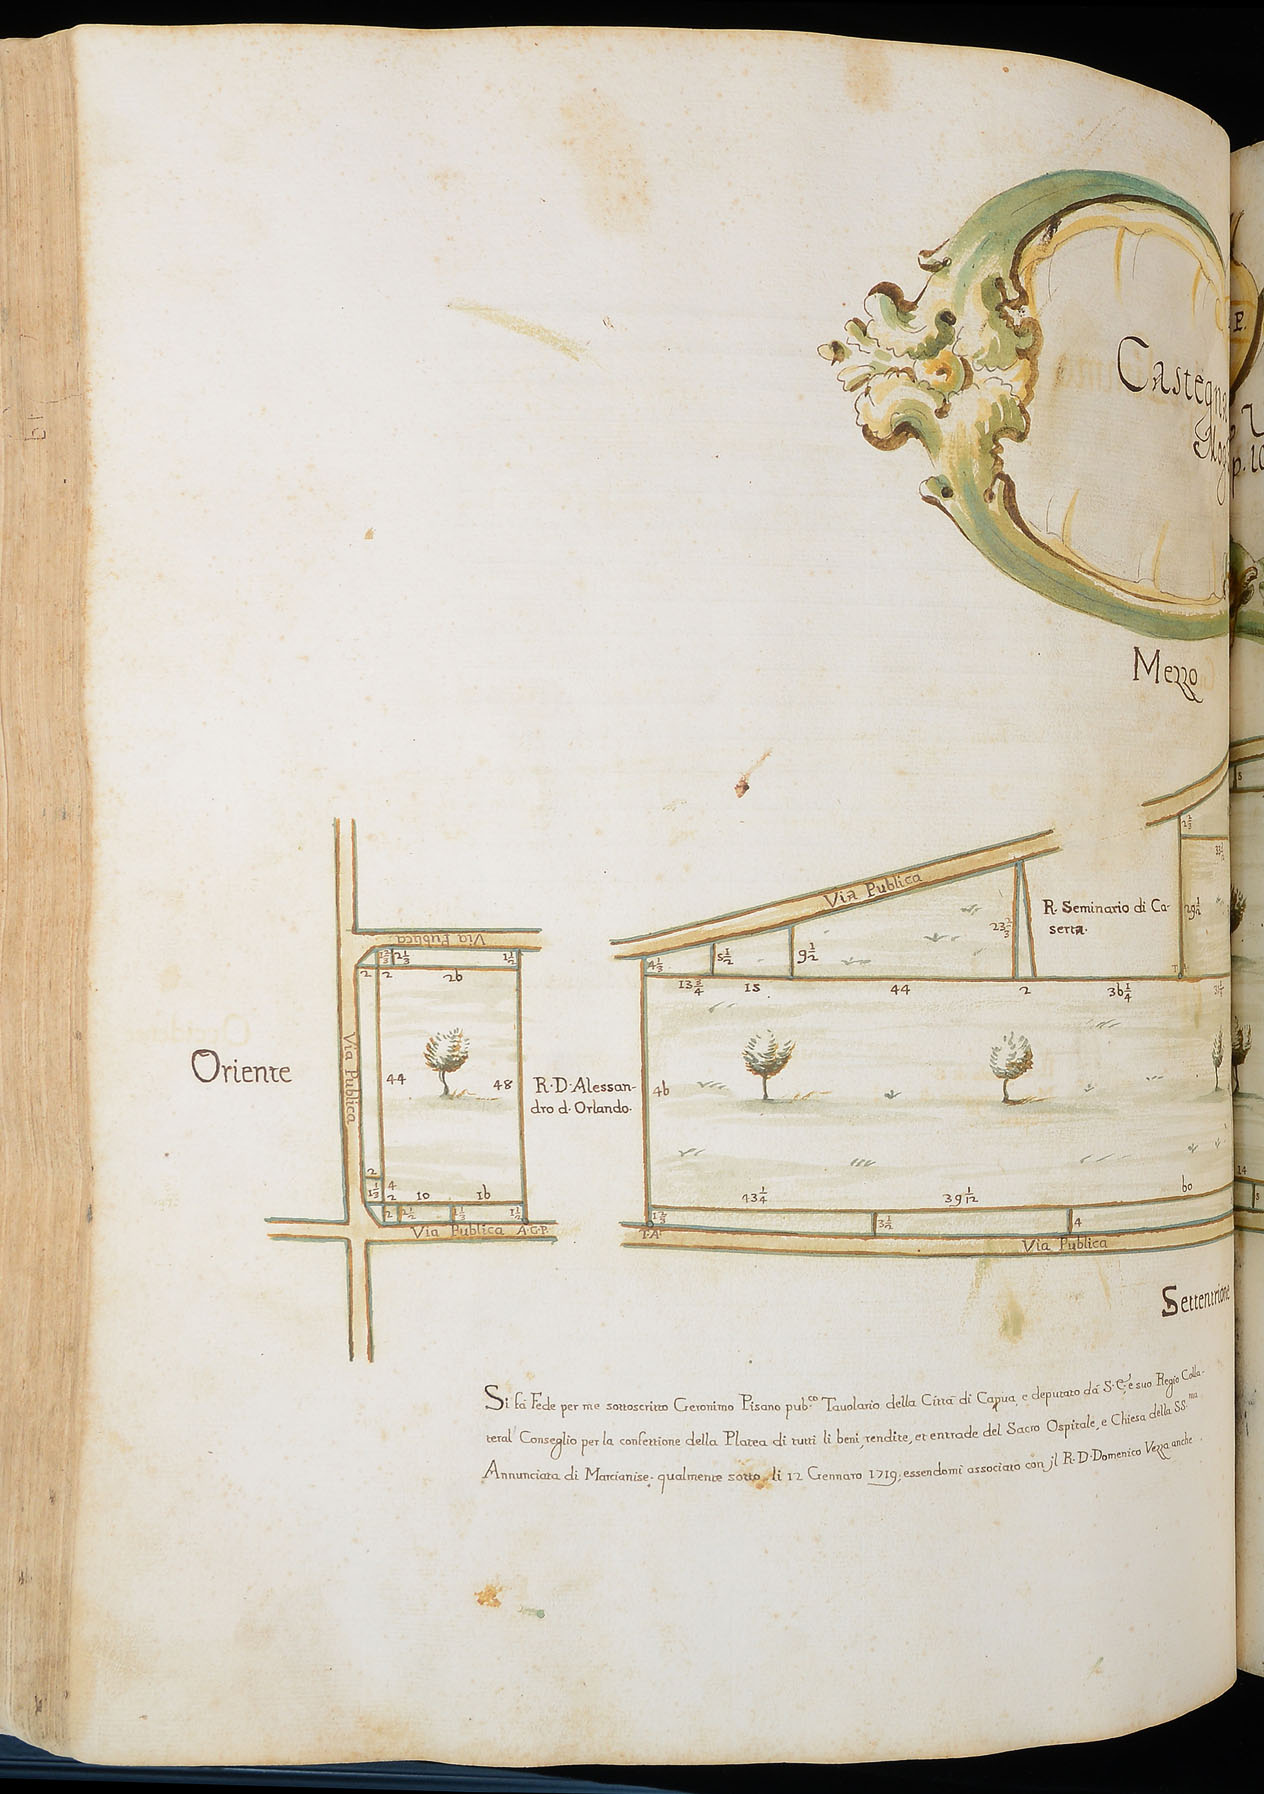 Castegna
Mezzo
Via Publica
Via Publica
R. Seminario di Ca-
serta.
1 2/3 2 1/3 1 1/2
2 2 26
4 1/3 5 1/2 9 1/2 23 2/3
13 3/4 15 44 2 36 1/4
2 1/3
29 1/2
Oriente
Via Publica
44 48
R. D. Alessan-
dro d. Orlando.
46
2
4
2 10 16
43 1/4 39 1/12 60
2 2 1/2 1 1/2
3 1/2 4
Via Publica A.G.P.
T.A.
Via Publica
14
Settentrione
Si fà Fede per me sottoscritto Geronimo Pisano pub.co Tavolario della Città di Capua, e deputato dà S. C. e suo Regio Colla-
teral Conseglio per la confettione della Platea di tutti li beni, rendite, et entrade del Sacro Ospitale, e Chiesa della SS.ma
Annunciata di Marcianise. qualmente sotto li 12 Gennaro 1719, essendomi associato con jl R. D. Domenico Vezza anche